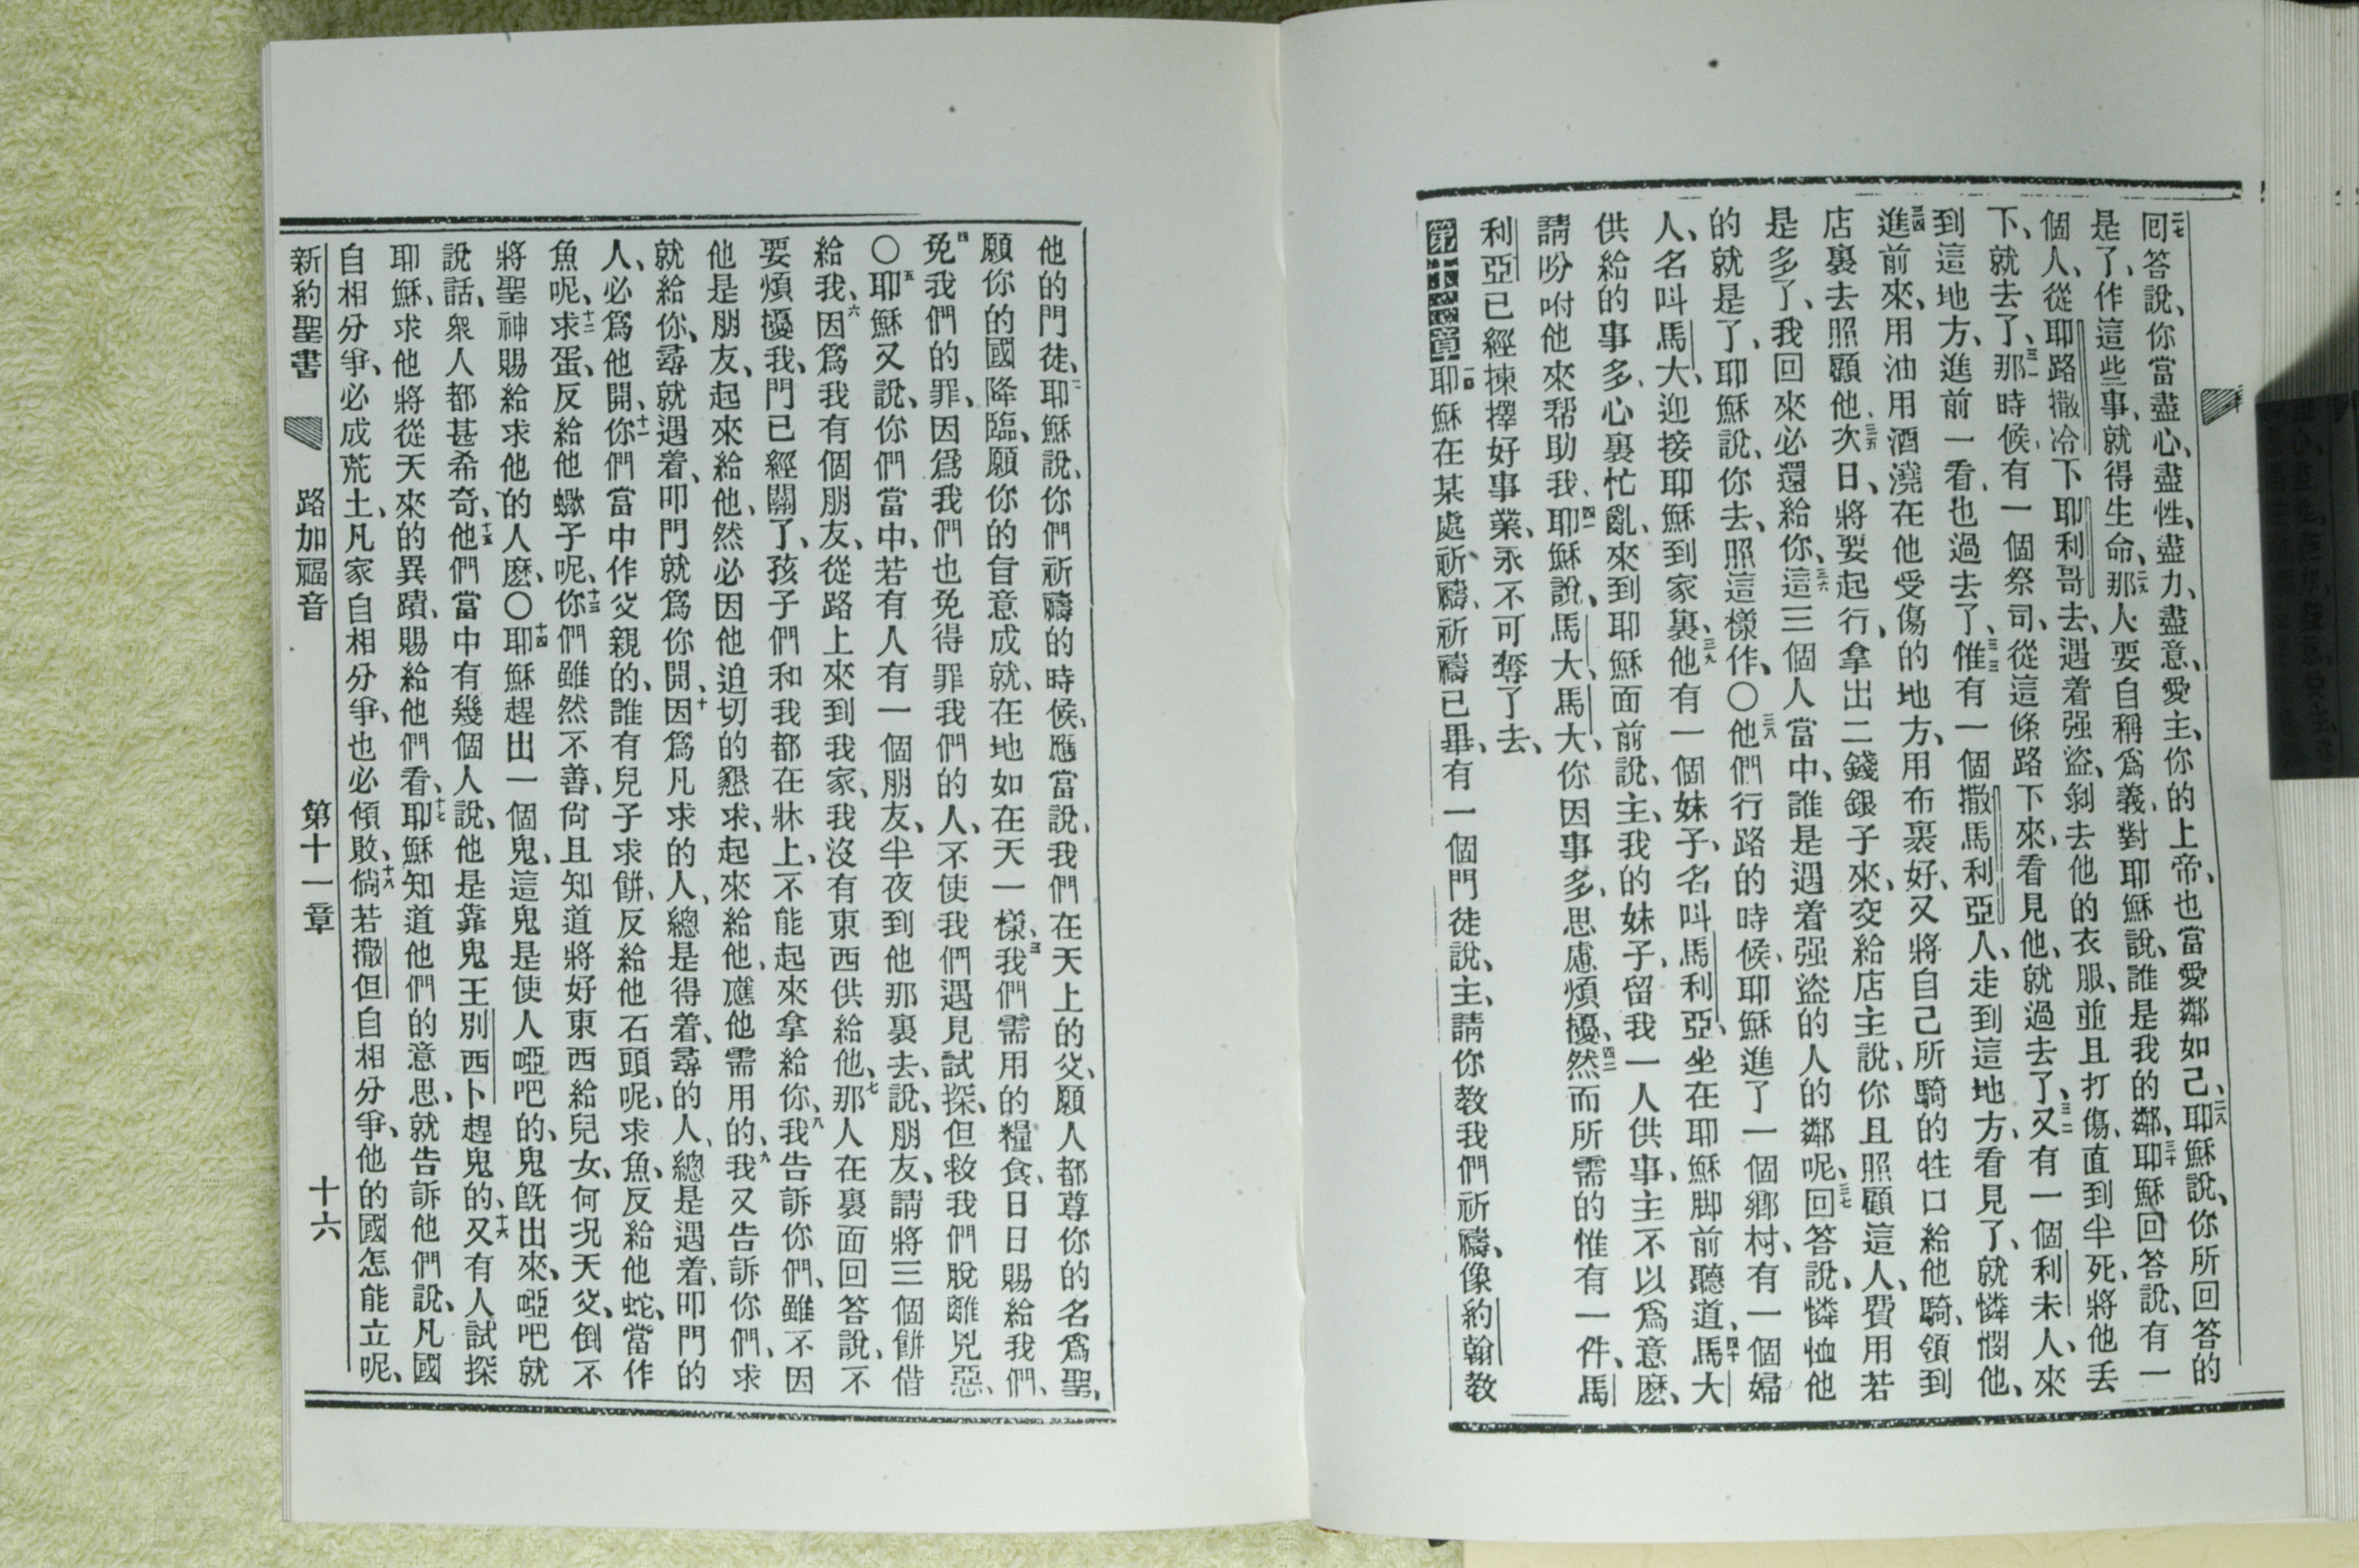 二七回答說、你當盡心、盡性、盡力、盡意、愛主、你的上帝、也當愛鄰如己、二八耶穌說、你所回答的
是了、作這些事、就得生命、二九那人要自稱爲義、對耶穌說、誰是我的鄰、三十耶穌回答說、有一
個人、從耶路撒冷下耶利哥去、遇着强盜、剝去他的衣服、並且打傷、直到半死、將他丟
下、就去了、三一那時候、有一個祭司、從這條路下來、看見他、就過去了、三二又有一個利未人、來
到這地方、進前一看、也過去了、三三惟有一個撒馬利亞人、走到這地方、看見了、就憐憫他、
三四進前來、用油用酒澆在他受傷的地方、用布裹好、又將自己所騎的牲口給他騎、領到
店裏去照顧他、三五次日、將要起行、拿出二錢銀子來、交給店主說、你且照顧這人、費用若
是多了、我回來必還給你、三六這三個人當中、誰是遇着强盜的人的鄰呢、三七回答說、憐恤他
的就是了、耶穌說、你去、照這樣作、〇三八他們行路的時候、耶穌進了一個鄉村、有一個婦
人、名叫馬大、迎接耶穌到家裏、三九他有一個妹子、名叫馬利亞、坐在耶穌脚前聽道、四十馬大
供給的事多、心裏忙亂、來到耶穌面前說、主、我的妹子、留我一人供事、主不以爲意麽、
請吩咐他來帮助我、四一耶穌說、馬大、馬大、你因事多、思慮煩擾、四二然而所需的惟有一件、馬
利亞已經揀擇好事業、永不可奪了去、
第十一章一耶穌在某處祈禱、祈禱已畢、有一個門徒說、主、請你教我們祈禱、像約翰教
他的門徒、二耶穌說、你們祈禱的時候、應當說、我們在天上的父、願人都尊你的名爲聖、
願你的國降臨、願你的旨意成就、在地如在天一樣、三我們需用的糧食、日日賜給我們、
四免我們的罪、因爲我們也免得罪我們的人、不使我們遇見試探、但救我們脫離兇惡、
〇五耶穌又說、你們當中、若有人有一個朋友、半夜到他那裏去、說、朋友、請將三個餅借
給我、六因爲我有個朋友、從路上來到我家、我沒有東西供給他、七那人在裏面回答說、不
要煩擾我、門已經關了、孩子們和我都在牀上、不能起來拿給你、八我告訴你們、雖不因
他是朋友、起來給他、然必因他迫切的懇求、起來給他、應他需用的、九我又告訴你們、求
就給你、尋就遇着、叩門就爲你開、十因爲凡求的人、總是得着、尋的人、總是遇着、叩門的
人、必爲他開、十一你們當中作父親的、誰有兒子求餅、反給他石頭呢、求魚、反給他蛇、當作
魚呢、十二求蛋、反給他蠍子呢、十三你們雖然不善、尙且知道將好東西給兒女、何況天父、倒不
將聖神賜給求他的人麽、〇十四耶穌趕出一個鬼、這鬼是使人啞吧的、鬼旣出來、啞吧就
說話、衆人都甚希奇、十五他們當中有幾個人說、他是靠鬼王別西卜趕鬼的、十六又有人試探
耶穌、求他將從天來的異蹟、賜給他們看、十七耶穌知道他們的意思、就告訴他們說、凡國
自相分爭、必成荒土、凡家自相分爭、也必傾敗、十八倘若撒但自相分爭、他的國怎能立呢、
新約聖書 路加福音 第十一章 十六